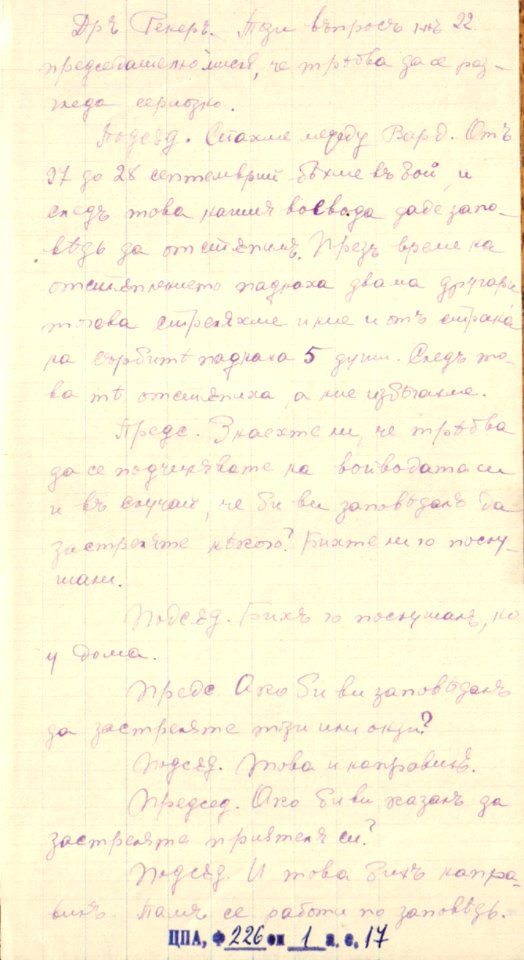 Дръ Гекеръ. Този въпросъ
председателю мисля, че трѣбва да се раз-
жеда сериозно.
Подсѫд. Спахме между Вард. Отъ
27 до 28 септемврий бѣхме въ бой, и
следъ това нашия войвода даде запо-
вѣдь да отстѫпимъ. Презъ време на
отстѫплението паднаха двама другари
тогава стреляхме и ние и отъ страна-
та сърбитѣ паднаха 5 души. Следъ то-
ва тѣ отстѫпиха, а ние избѣгахме.
Предс. Знаехте ли, че трѣбва
да се подчинявате на войводата си
и въ случай, че би ви заповѣдалъ да
застреляте нѣкого? Бихте ли го послу-
шали.
Подсѫд. Бихъ го послушалъ, но
у дома.
Предс. Ако би ви заповѣдалъ
да застреляте този или онзи?
Подсѫд. Това и направихъ.
Председ. Ако би ви казалъ да
застреляте приятеля си?
Подсѫд. И това бихъ напра-
вилъ. Тамъ се работи по заповѣдь.
ЦПА, ф 226 оп 1 а. е. 17